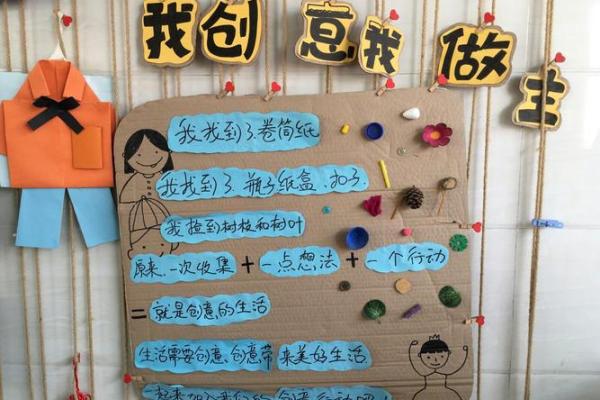 我创意我做主
我找到了卷筒纸
我找到了瓶子纸盒、扣子
我捡到树枝和树叶
原来、一次收集+一点想法+一个行动
=就是创意的生活
生活需要创意、创意带来美好生活
一起来加入我们的创意行动吧!